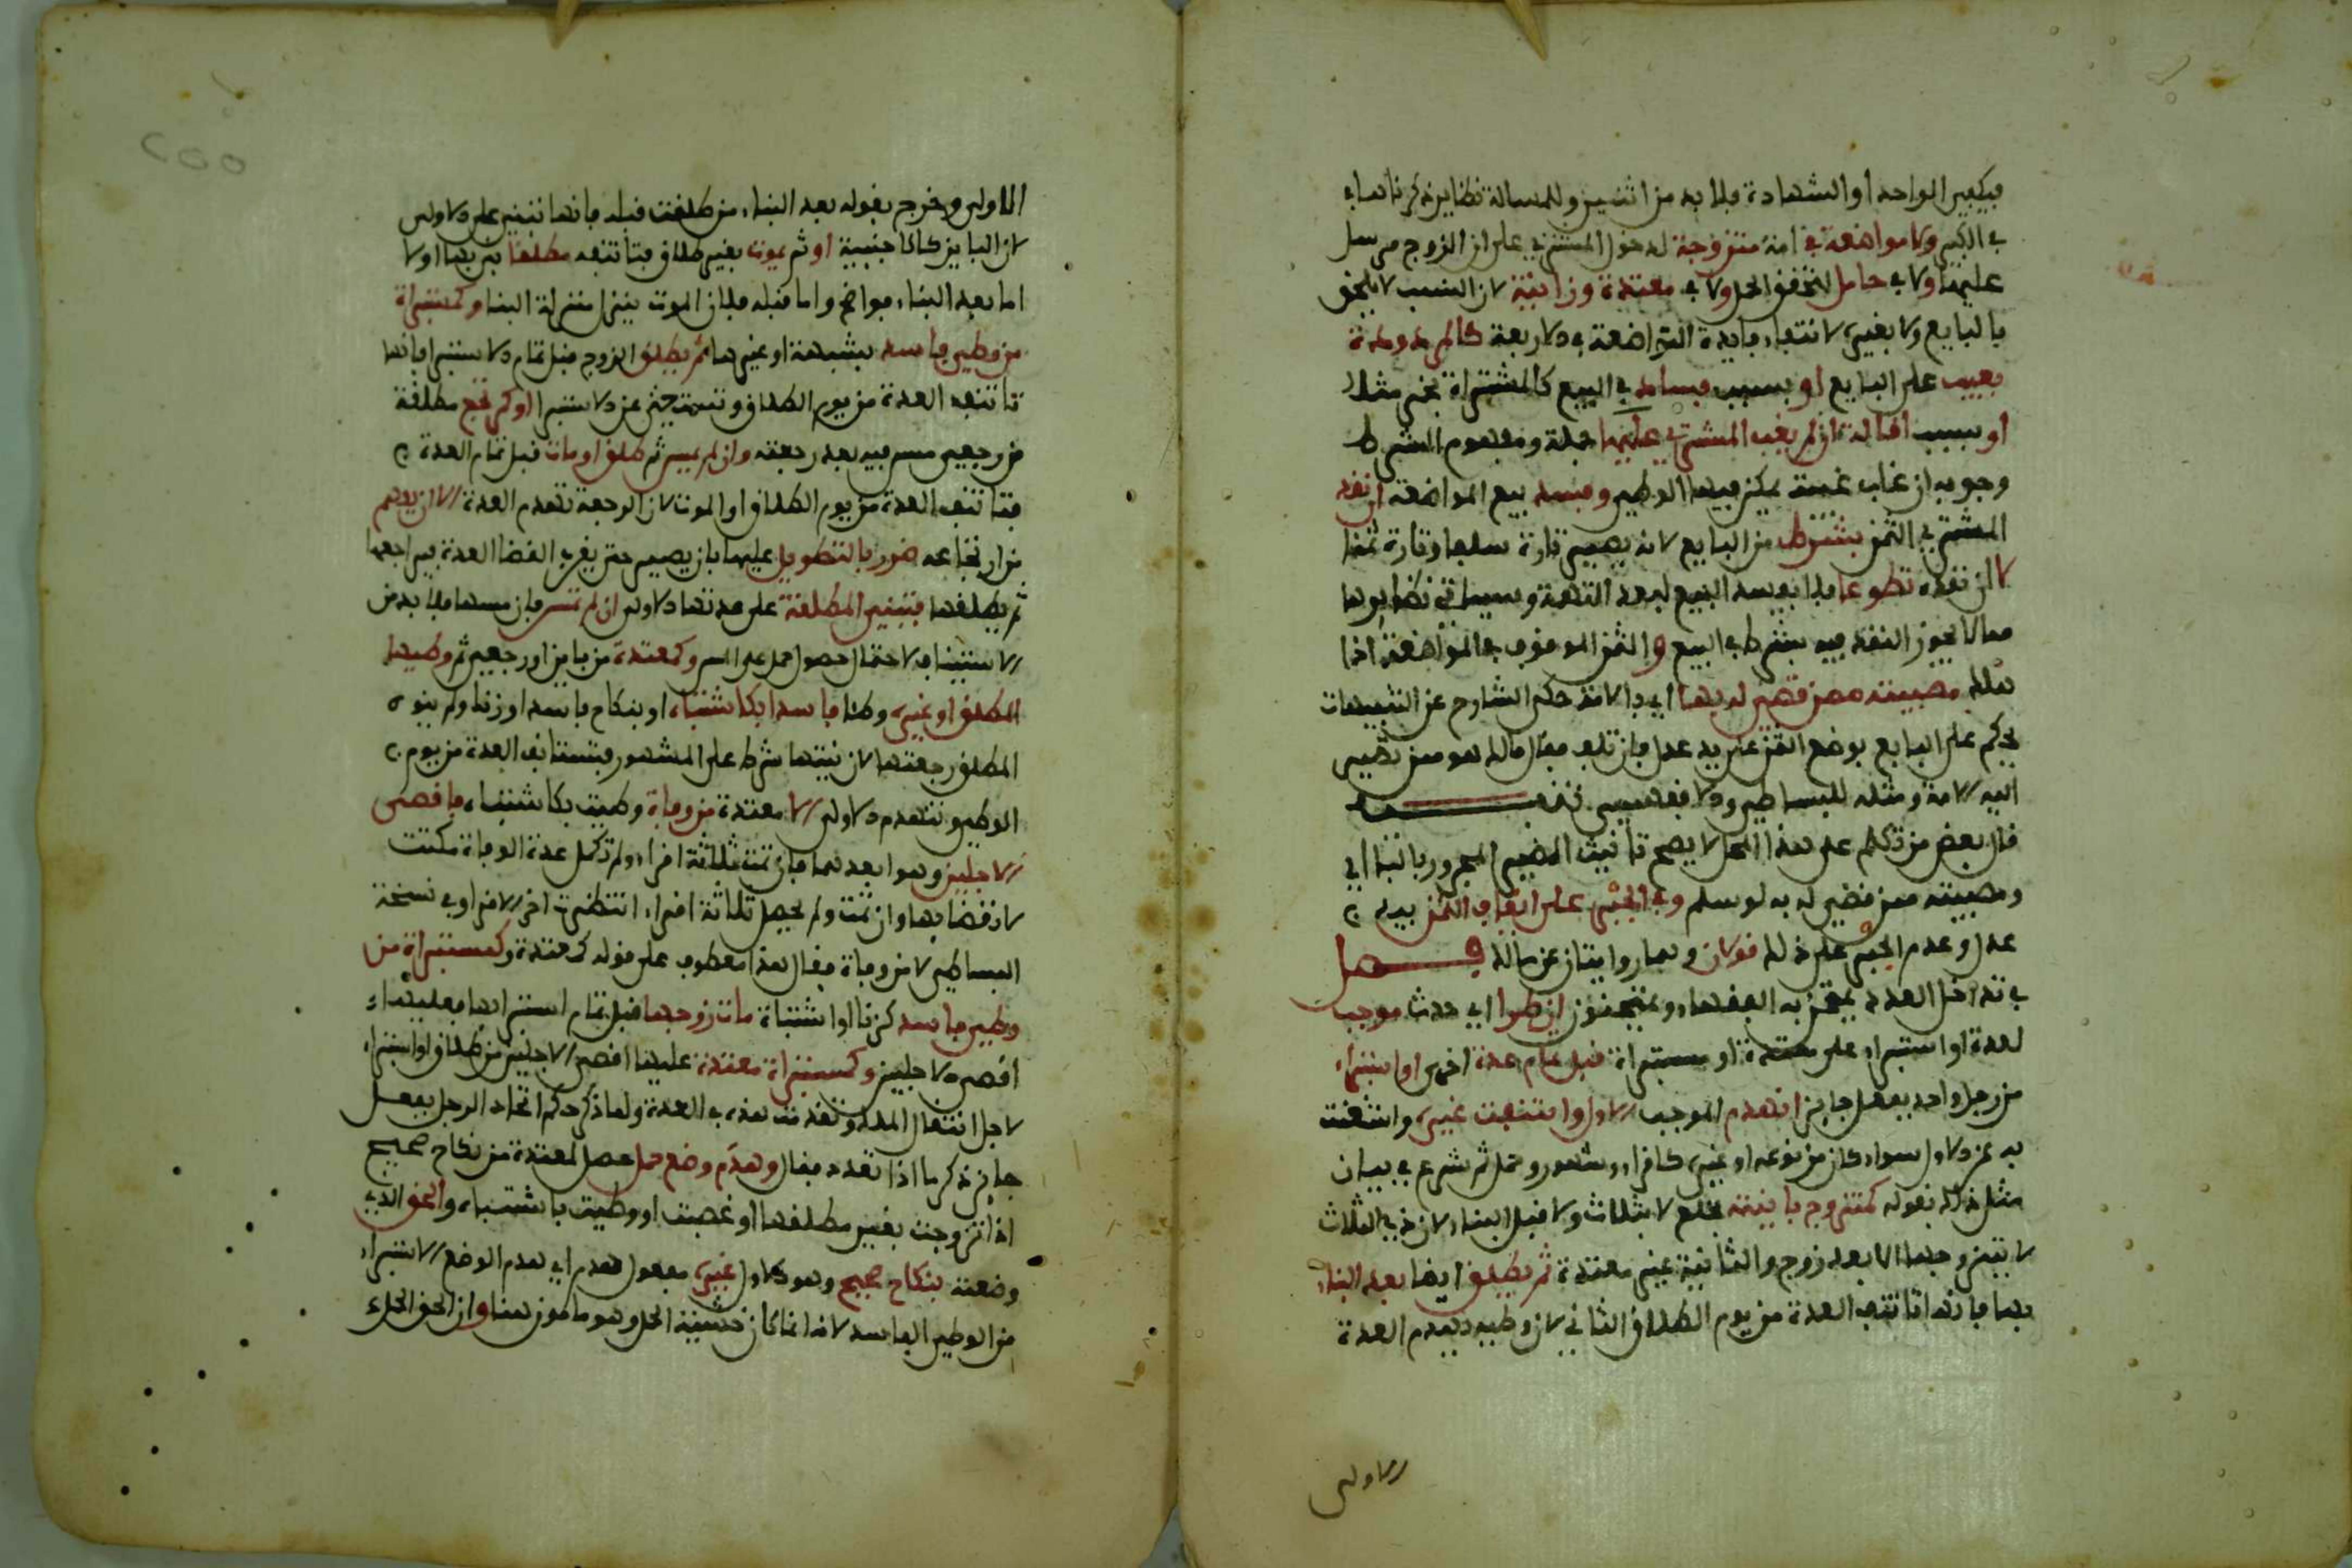 فيكفي الواحد او الشهادة فلا بد من اثنين وللمسالة نظاير ذكرناها
في الكبير ولا مواضعة في امة متزوجة لدخول المشتري على ان الزوج مرسل
عليها ولا في حامل لتحقق الحمل ولا في معتدة وزانية لان النسب لا يلحق
بالبايع ولا بغيره لانتفاء فايدة المواضعة في الاربعة كالمردودة
بعيب على البايع او بسبب فساد في البيع كالمشتراة بخمر مثلا
او بسبب اقالة ان لم يغب المشتري عليها جملة ومفهوم الشرط
وجوبه ان غاب غيبة يمكن فيها الوطي وفسد بيع المواضعة ان نقد
المشتري الثمن بشرط من البايع لانه يصير تارة سلفا وتارة ثمنا
لا ان نقده تطوعا فلا يفسد البيع لبعد التهمة وسياتي نظايرها
مما لا يجوز النقد فيه بشرط في البيع والثمن الموقوف في المواضعة اذا
هلك مصيبته ممن قضي له بها اي بالامة حكى الشارح عن التنبيهات
يحكم على البايع بوضع الثمن على يد عدل فان تلف فقال مالك هو ممن تصير
اليه الامة ومثله للبساطي والاقفهسي تنبيه
قال بعض من تكلم على هذا المحل لا يصح تانيث الضمير المجرور بالباء اي
ومصيبته ممن قضي له به لو سلم وفي الجبر على ايقاف الثمن بيد
عدل وعدم الجبر على ذلك قولان وهما روايتان عن مالك فصل
في تداخل العدد يمتحن به الفقهاء ويمتحنون ان طرا اي حدث موجب
لعدة او استبراء على معتدة او مستبراة قبل تمام عدة اخرى او استبراء
من رجل واحد بفعل جايز انهدم الموجب الاول وائتنفت غيره وانتقلت
به عن الاول سواء كان من نوعه او غيره كاقراء وشهور وحمل ثم شرع في بيان
مثل ذلك بقوله كمتزوج باينته بخلع لا بثلاث ولا قبل البناء لان ذي الثلاث
لا يتزوجها الا بعد زوج والثانية غير معتدة ثم يطلق ايضا بعد البناء
بها فانها تاتنف العدة من يوم الطلاق الثاني لان وطيه يهدم العدة
الاولى
الاولى وخرج بقوله بعد البناء من طلقت قبله فانها تبني على الاولى
لان الباين كالاجنبية او ثم يموت بغير طلاق فتاتنفه مطلقا بنى بها او لا
اما بعد البناء فواضح واما قبله فلان الموت ينزل منزلة البناء وكمستبراة
من وطي فاسد بشبهة او غيرها ثم يطلق الزوج قبل تمام الاستبرا فانها
تاتنف العدة من يوم الطلاق وتستغني عن الاستبرا او كمرتجع مطلقة
من رجعي مس فيه بعد رجعته وان لم يمس ثم طلق او مات قبل تمام العدة
فتاتنف العدة من يوم الطلاق او الموت لان الرجعة تهدم العدة الا ان يفهم
من ارتجاعه ضرر بالتطويل عليها بان يصير حتى يقرب انقضا العدة فيراجعها
ثم يطلقها فتبني المطلقة على عدتها الاولى ان لم تمس فان مسها فلا بد من
الاستيناف لاحتمال حصول حمل على المس وكمعتدة من باين او رجعي ثم وطيها
المطلق او غيره وطئا فاسدا بكاشتباه او بنكاح فاسد او زنا ولم ينو
المطلق رجعتها لان نيتها شرط على المشهور فتستانف العدة من يوم
الوطي وتنهدم الاولى الا معتدة من وفاة وطيت بكاشتباه فاقصى
الاجلين وهو ابعدهما فان تمت ثلاثة اقراء ولم تكمل عدة الوفاة مكثت
لانقضايها وان تمت ولم يحصل ثلاثة اقراء انتظرت اخر الاقراء وفي نسخة
البساطي لا من وفاة فقال هذا معطوف على قوله كمعتدة وكمستبراة من
وطي فاسد كزنا او اشتباه مات زوجها قبل تمام استبرايها فعليها
اقصى الاجلين وكمستبراة معتدة عليها اقصى الاجلين من طلاق او استبراء
لاجل انتقال الملك وتقدمت هذه في العدة ولما ذكر حكم اتحاد الرجل بفعل
جايز ذكر ما اذا تعدد فقال وهدم وضع حمل حصل لمعتدة من نكاح صحيح
اذا تزوجت بغير مطلقها او غصبت او وطيت باشتباه والحق الذي
وضعته بنكاح صحيح وهو الاول غيره مفعول هدم اي هدم الوضع الاستبراء
من الوطي الفاسد لانه انما كان خشية الحمل وهو مامون هنا وان الحق الحمل